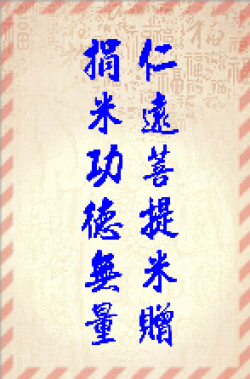 仁遠菩提米贈
捐米功德無量